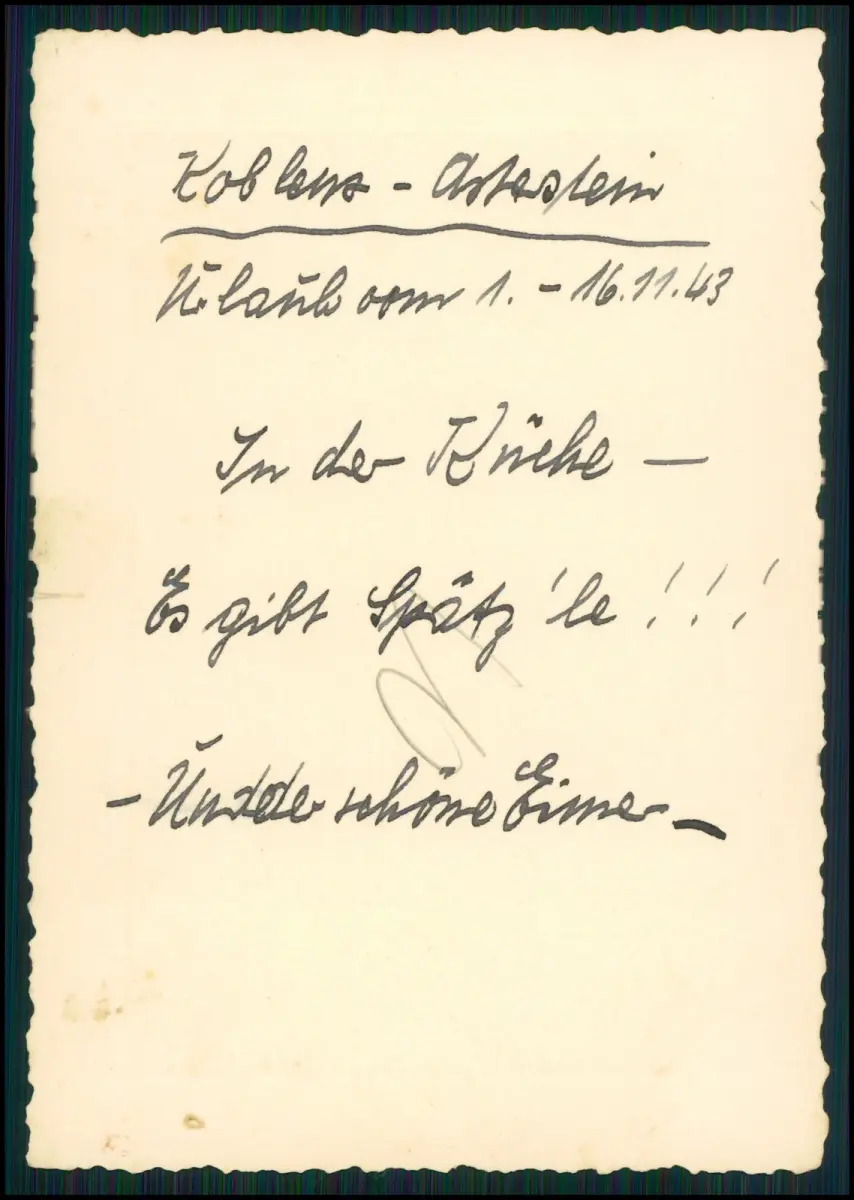 Koblenz - Asterstein
Urlaub vom 1. - 16.11.43
In der Küche —
Es gibt Spätz'le !!!
- Und der schöne Eimer -